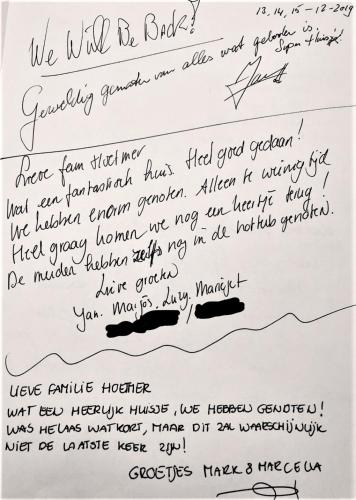 13, 14, 15-12-2019
We Will Be Back!
Geweldig genoten van alles wat geboden is.
Super Huisje!
Lieve fam Hoetmer
Wat een fantastisch huis. Heel goed gedaan!
We hebben enorm genoten. Alleen te weinig tijd
Heel graag komen we nog een keertje terug!
De meiden hebben zelfs nog in de hottub genoten.
Lieve groeten
Jan,
LIEVE FAMILIE HOETMER
WAT EEN HEERLIJK HUISJE, WE HEBBEN GENOTEN!
WAS HELAAS WAT KORT, MAAR DIT ZAL WAARSCHIJNLIJK
NIET DE LAATSTE KEER ZIJN!
GROETJES MARK & MARCELLA